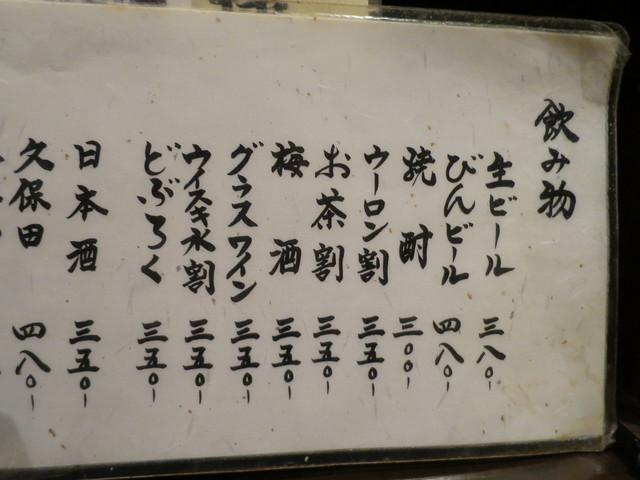 飲み物
生ビール 三八〇-
びんビール 四八〇-
焼酎 三〇〇-
ウーロン割 三五〇-
お茶割 三五〇-
梅酒 三五〇-
グラスワイン 三五〇-
ウイスキ水割 三五〇-
どぶろく 三五〇-
日本酒 三五〇-
久保田 四八〇-